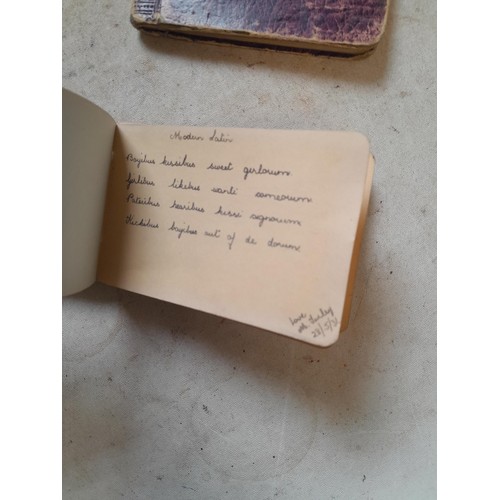 Modern Latin
Boyibus kissibus sweet girlorum
girlibus likibus wanti someorum
Patribus hearibus kissi sonorum
Kickibus boyibus out of de dorum
Love
28/5/31